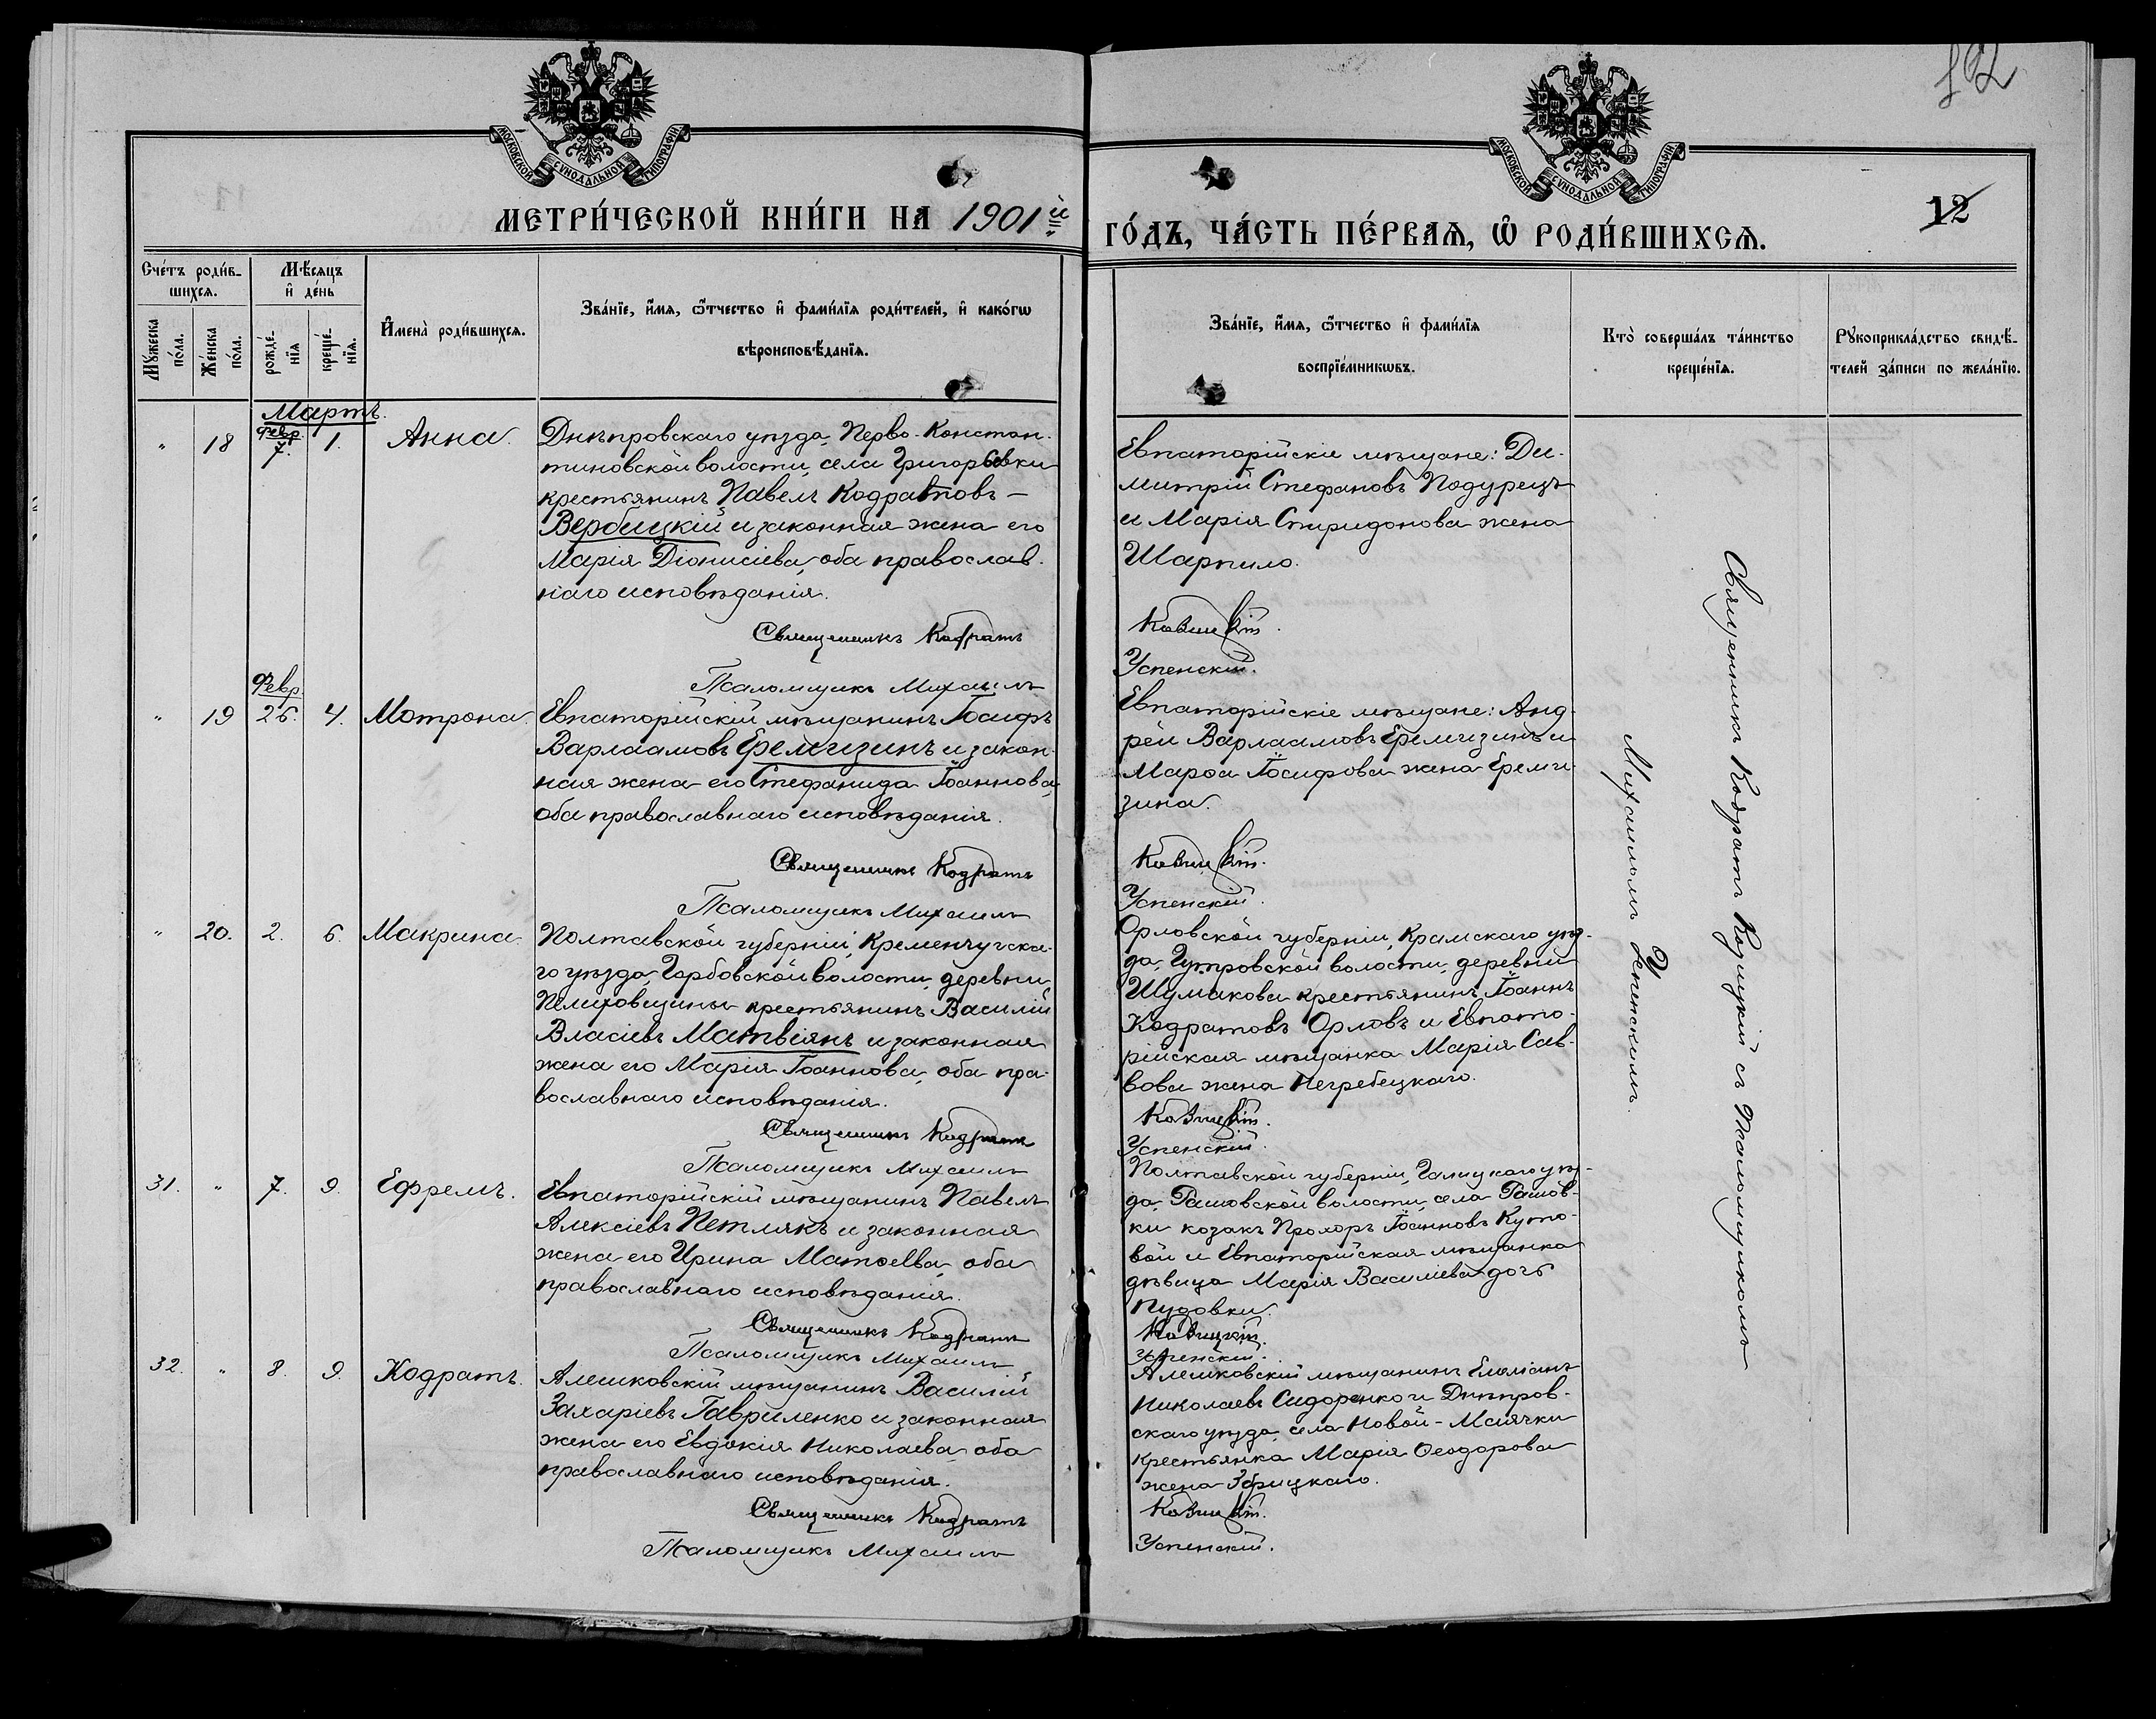 12
МОСКОВСКОЙ СѴНОДАЛЬНОЙ ТИПОГРАФІИ
МОСКОВСКОЙ СѴНОДАЛЬНОЙ ТИПОГРАФІИ
МЕТРИ́ЧЕСКОЙ КНИ́ГИ НА 1901й
ГО́ДЪ, ЧА́СТЬ ПЕ́РВАѦ, Ѡ҆ РОДИ́ВШИХСѦ.
12
Сче́тъ роди́в-
шихсѧ.
Мѣ́сѧцъ
и҆ де́нь
Мꙋ́жеска
по́ла.
Же́нска
по́ла.
рожде́-
нїѧ
креще́-
нїѧ.
И҆мена̀ роди́вшихсѧ.
Зва́нїе, и҆́мѧ, ѻ҆́тчество и҆ фами́лїѧ роди́телей, и҆ како́гѡ
вѣроисповѣ́данїѧ.
Зва́нїе, и҆́мѧ, ѻ҆́тчество и҆ фами́лїѧ
воспрїе́мникѡвъ.
Кто̀ соверша́лъ та́инство
креще́нїѧ.
Рꙋкоприкла́дство свидѣ́-
телей за́писи по жела́нїю.
Мартъ.
" 18 Февр. 7. 1. Анна.
Днѣпровскаго уѣзда, Перво-Констан-
тиновской волости, села Григорьевки
крестьянинъ Павелъ Кодратовъ –
Вербицкій и законная жена его
Марія Діонисіева, оба православ-
наго исповѣданія.
Священникъ Кодратъ
Псаломщикъ Михаилъ
Евпаторійскіе мѣщане: Ди-
митрій Стефановъ Подурецъ
и Марія Спиридонова жена
Шарпило.
Козицкій.
Успенскій.
" 19 Февр. 26. 4. Мотрона.
Евпаторійскій мѣщанинъ Іосифъ
Варлаамовъ Еремизинъ и закон-
ная жена его Стефанида Іоаннова,
оба православнаго исповѣданія.
Священникъ Кодратъ
Псаломщикъ Михаилъ
Евпаторійскіе мѣщане: Анд-
рей Варлаамовъ Еремизинъ и
Марѳа Іосифова жена Ереми-
зина.
Козицкій.
Успенскій.
" 20. 2. 6. Макрина.
Полтавской губерніи, Кременчугска-
го уѣзда, Горбовской волости, деревни
Пелиховщины крестьянинъ Василій
Власіевъ Матвіянъ и законная
жена его Марія Іоаннова, оба пра-
вославнаго исповѣданія.
Священникъ Кодратъ
Псаломщикъ Михаилъ
Орловской губерніи, Крамскаго уѣз-
да, Гутровской волости, деревни
Шумакова крестьянинъ Іоаннъ
Кодратовъ Орловъ и Евпато-
рійская мѣщанка Марія Сав-
вова жена Негребецкаго.
Козицкій.
Успенскій.
31. " 7. 9. Ефремъ.
Евпаторійскій мѣщанинъ Павелъ
Алексіевъ Петлякъ и законная
жена его Ирина Матѳеева, оба
православнаго исповѣданія.
Священникъ Кодратъ
Псаломщикъ Михаилъ
Полтавской губерніи, Гадяцкаго уѣз-
да, Рашовской волости, села Рашов-
ки козакъ Прохоръ Іоанновъ Куто-
вой и Евпаторійская мѣщанка
дѣвица Марія Василіева дочь
Пудовки.
Козицкій.
Успенскій.
32. " 8. 9. Кодратъ.
Алешковскій мѣщанинъ Василій
Захаріевъ Гавриленко и законная
жена его Евдокія Николаева, оба
православнаго исповѣданія.
Священникъ Кодратъ
Псаломщикъ Михаилъ
Алешковскій мѣщанинъ Емеліанъ
Николаевъ Сидоренко и Днѣпров-
скаго уѣзда, села Новой-Маячки
крестьянка Марія Ѳеодорова
жена Збрицкаго.
Козицкій.
Успенскій.
Священникъ Кодратъ Козицкій съ псаломщикомъ
Михаиломъ Успенскимъ.